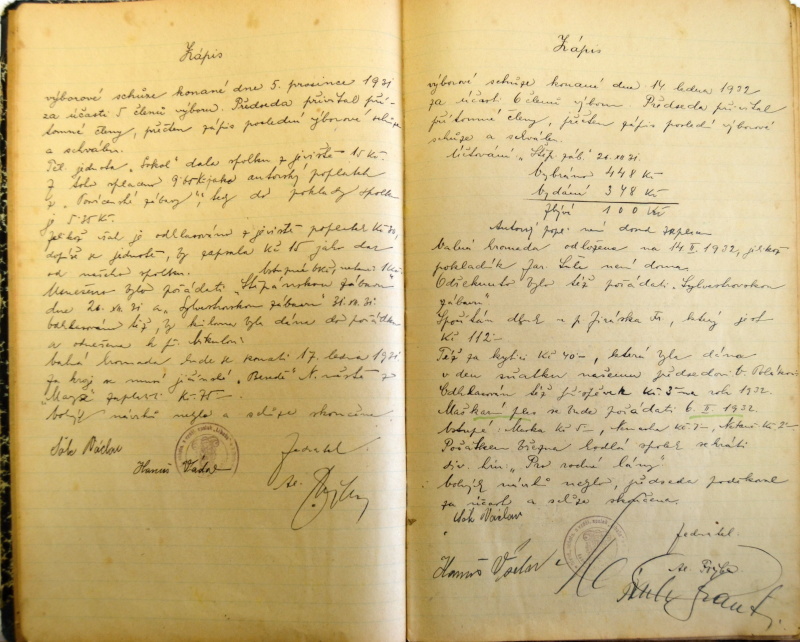 Zápis
výborové schůze konané dne 5. prosince 1931
za účasti 5 členů výboru. Předseda přivítal pří-
tomné členy, přečten zápis poslední výborové schůze
a schválen.
Těl. jednota „Sokol" dala spolku z jeviště 15 Kč.
z toho splaceno jako autorský poplatek
z „Posvícenské zábavy", tedy do pokladny spolku
je 5·35 Kč.
Jelikož však je odhlasováno z jeviště poplatek Kč
se jednotě, by zapsala Kč 15 jako dar
od našeho spolku.
Usneseno bylo pořádati „Štěpánskou zábavu
dne 26. XII. 31 a „Sylvestrovskou zábavu" 31. XII. 31
Odhlasováno též, by byla dána do pořádku
a odnešena k p.
Valná hromada bude se konati 17. ledna 1931
Za kroj se musí „Bendě" N.
zaplatit Kč 75 –
Volných návrhů nebylo a schůze skončena.
Václav
Hanuš Václav
Jednatel
Zápis
výborové schůze konané dne 14 ledna 1932
za účasti 6 členů výboru Předseda přivítal
přítomné členy, přečten zápis poslední výborové
schůze a schválen.
Účtování „Štěp. záb." 26. XII. 31.
Vybráno 448 Kč
vydání 348 Kč
Zbývá 100 Kč
Autorský popl. není dosud zaplacen
Valná hromada odložena na 14 II. 1932, jelikož
pokladník Jar. není doma.
Odřeknuto bylo též pořádati „Sylvestrovskou
zábavu"
dluh u p. Jiráska Fr., který jest
Kč 112 –
Též za kytici Kč 40 –, která byla dána
v den sňatku našemu předsedovi
Odhlasován též příspěvek Kč na rok 1932.
Maškar. ples se bude pořádati 6. II. 1932.
Vstupné: Maska Kč 5 –, Nemaska Kč 7 –, Kč 2 –
Počátkem března hodlá spolek sehráti
div. hru „Pro rodné lány"
Volných návrhů nebylo, předseda poděkoval
za účast a schůze skončena.
Václav
Hanuš Václav
Jednatel